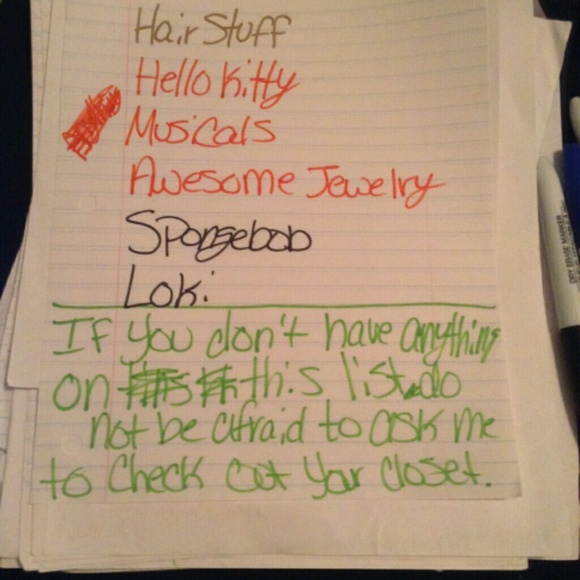 Hair Stuff
Hello Kitty
Musicals
Awesome Jewelry
Spongebob
Loki
If you don't have anything
on this list do
not be afraid to ask me
to check out your closet.
DRY ERASE MARKER